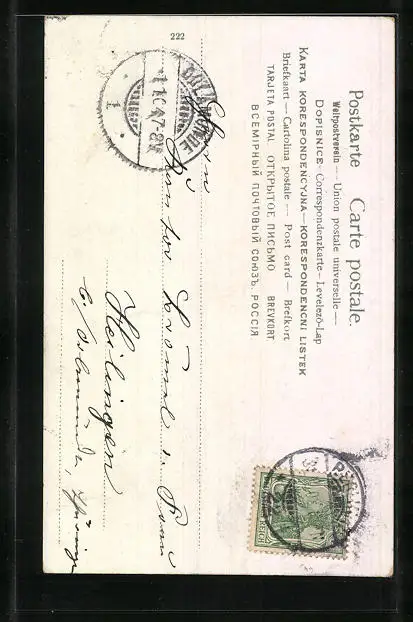 Postkarte Carte postale
Weltpostverein — Union postale universelle —
DOPISNICE — Correspondenzkarte — Levelező-Lap
KARTA KORESPONDENCYJNA — KORESPONDENCNI LISTEK
Briefkaart — Cartolina postale — Post card — Brefkort
TARJETA POSTAL ОТКРЫТОЕ ПИСЬМО BREVKORT
ВСЕМІРНЫЙ ПОЧТОВЫЙ СОЮЗЪ. РОССІЯ
222
Kantor
u. Frau
Heilingen
b/Orlamünde, Thüringen
ORLAMÜNDE
REICH